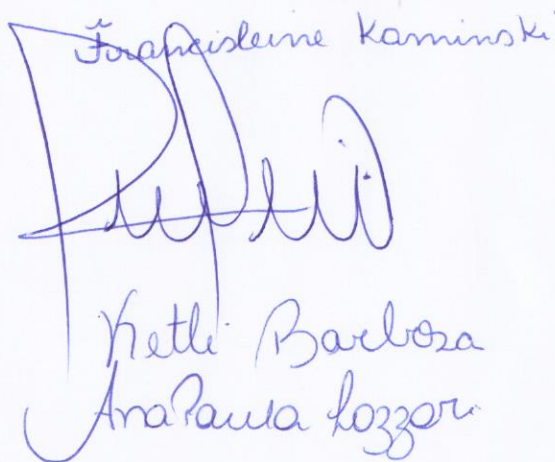 Francisleine Kaminski
Ketli Barboza
Ana Paula Lozzari